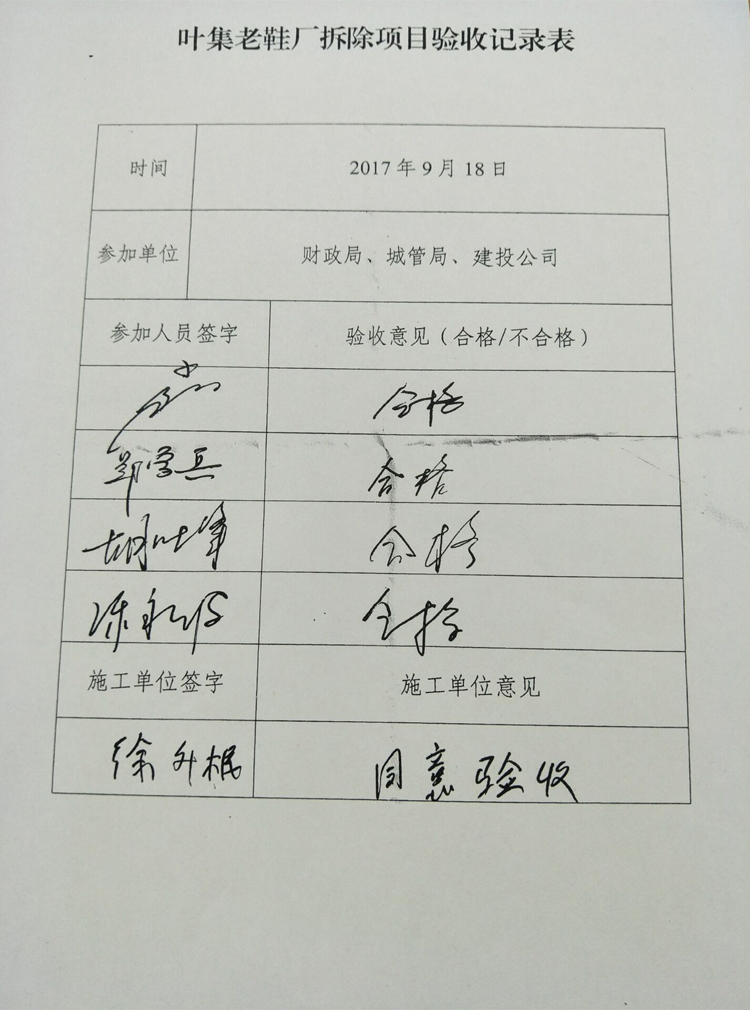 叶集老鞋厂拆除项目验收记录表
时间 2017年9月18日
参加单位 财政局、城管局、建投公司
参加人员签字 验收意见（合格/不合格）
合格
郑学兵 合格
合格
合格
施工单位签字 施工单位意见
徐 同意验收